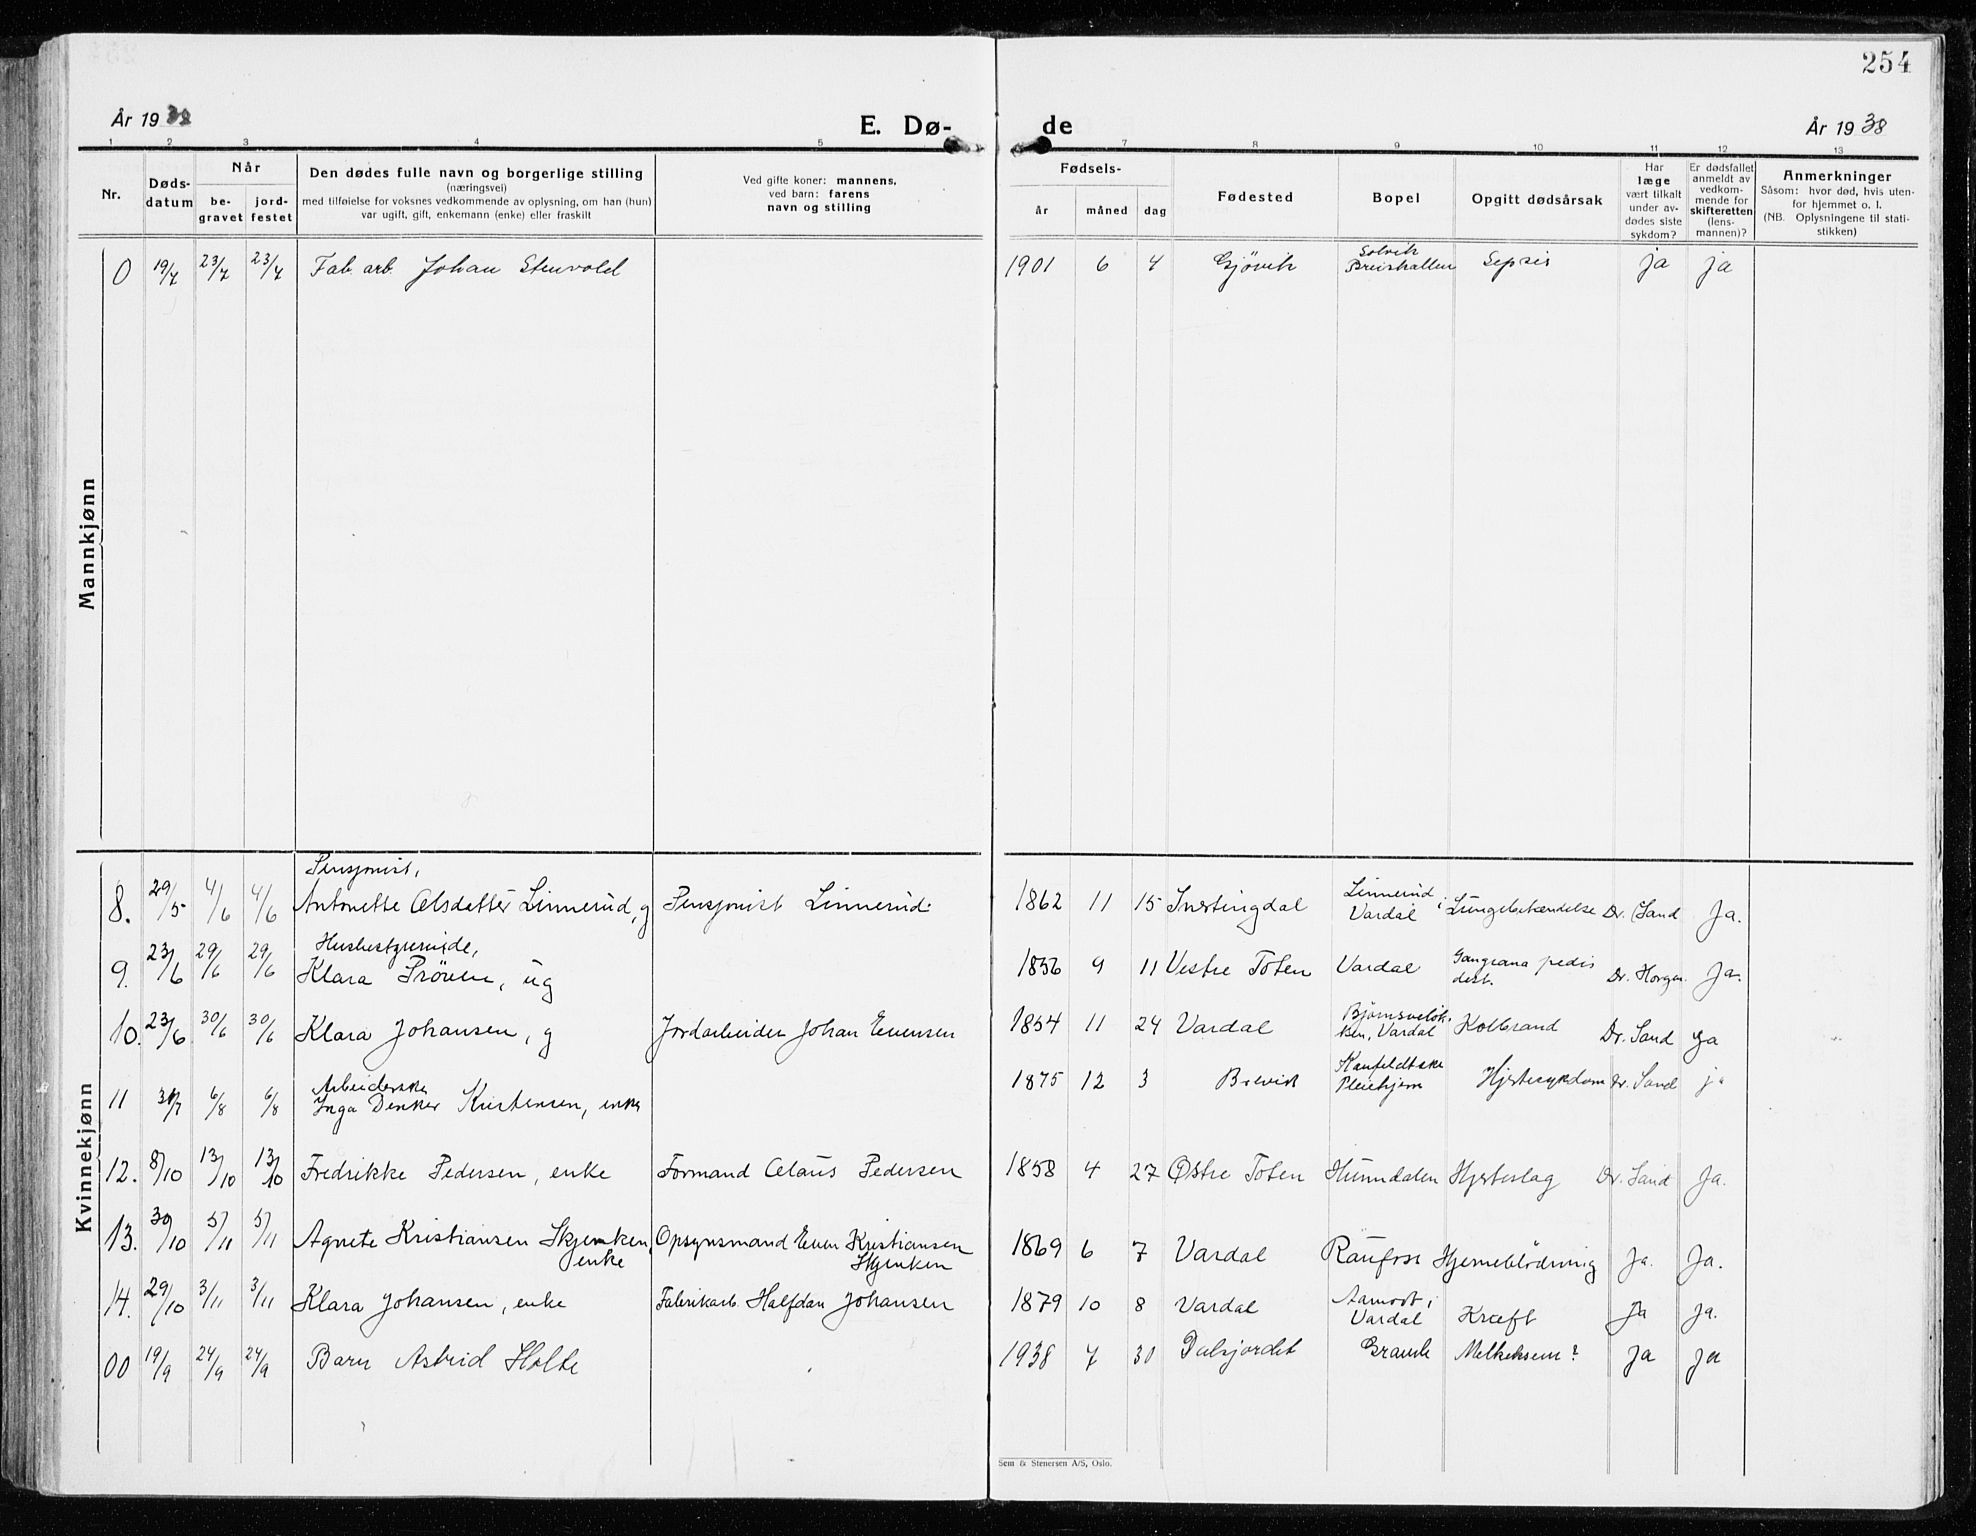 254
År 1938
E. Dø-
de
År 1938
1 2 3 4 5 7 8 9 10 11 12 13
Nr.
Døds-
datum
Når
be-
gravet
jord-
festet
Den dødes fulle navn og borgerlige stilling
(næringsvei)
med tilføielse for voksnes vedkommende av oplysning, om han (hun)
var ugift, gift, enkemann (enke) eller fraskilt
Ved gifte koner: mannens,
ved barn: farens
navn og stilling
Fødsels-
år
måned
dag
Fødested
Bopel
Opgitt dødsårsak
Har
læge
vært tilkalt
under av-
dødes siste
sykdom?
Er dødsfallet
anmeldt av
vedkom-
mende for
skifteretten
(lens-
mannen)?
Anmerkninger
Såsom: hvor død, hvis uten-
for hjemmet o. l.
(NB. Oplysningene til stati-
stikken)
Mannkjønn
Solvik
0 19/7 23/7 23/7 Fab. arb. Johan Stenvold 1901 6 4 Gjövik Breiskallen Sepsis ja ja
Kvinnekjønn
Pensjonist,
Linnerud i
8. 29/5 4/6 4/6 Antonette Olsdatter Linnerud, g Pensjonist Linnerud 1862 11 15 Snertingdal Vardal Lungebetændelse Dr. Sand Ja.
Husbestyrerinde,
Gangræna pedis
9. 23/6 29/6 29/6 Klara Pröven, ug 1856 9 11 Vestre Toten Vardal dext. Dr. Horgen Ja.
10. 23/6 30/6 30/6 Klara Johansen, g Jordarbeider Johan Evensen 1854 11 24 Vardal Vardal Kolbrand Dr. Sand Ja
Arbeiderske
11 31/7 6/8 6/8 Inga Denker Kristensen, enke 1875 12 3 Brevik Pleiehjem Hjertesykdom Dr. Sand ja
12. 8/10 13/10 13/10 Fredrikke Pedersen, enke Formand Olaus Pedersen 1858 4 27 Østre Toten Hunndalen Hjerteslag Dr. Sand Ja.
13. 30/10 5/11 5/11 Agnete Kristiansen Skjenken, Opsynsmand Even Kristiansen 1869 6 7 Vardal Raufoss Hjerneblödning Ja. Ja.
enke Skjenken
Aamodt i
14. 29/10 3/11 3/11 Klara Johansen, enke Fabrikarb. Halfdan Johansen 1879 10 8 Vardal Vardal Kræft Ja Ja.
00 19/9 24/9 24/9 Barn Astrid Holte 1938 7 30 Dalsjordet Gramle Melkeksem? Ja ja
Sem & Stenersen A/S, Oslo.